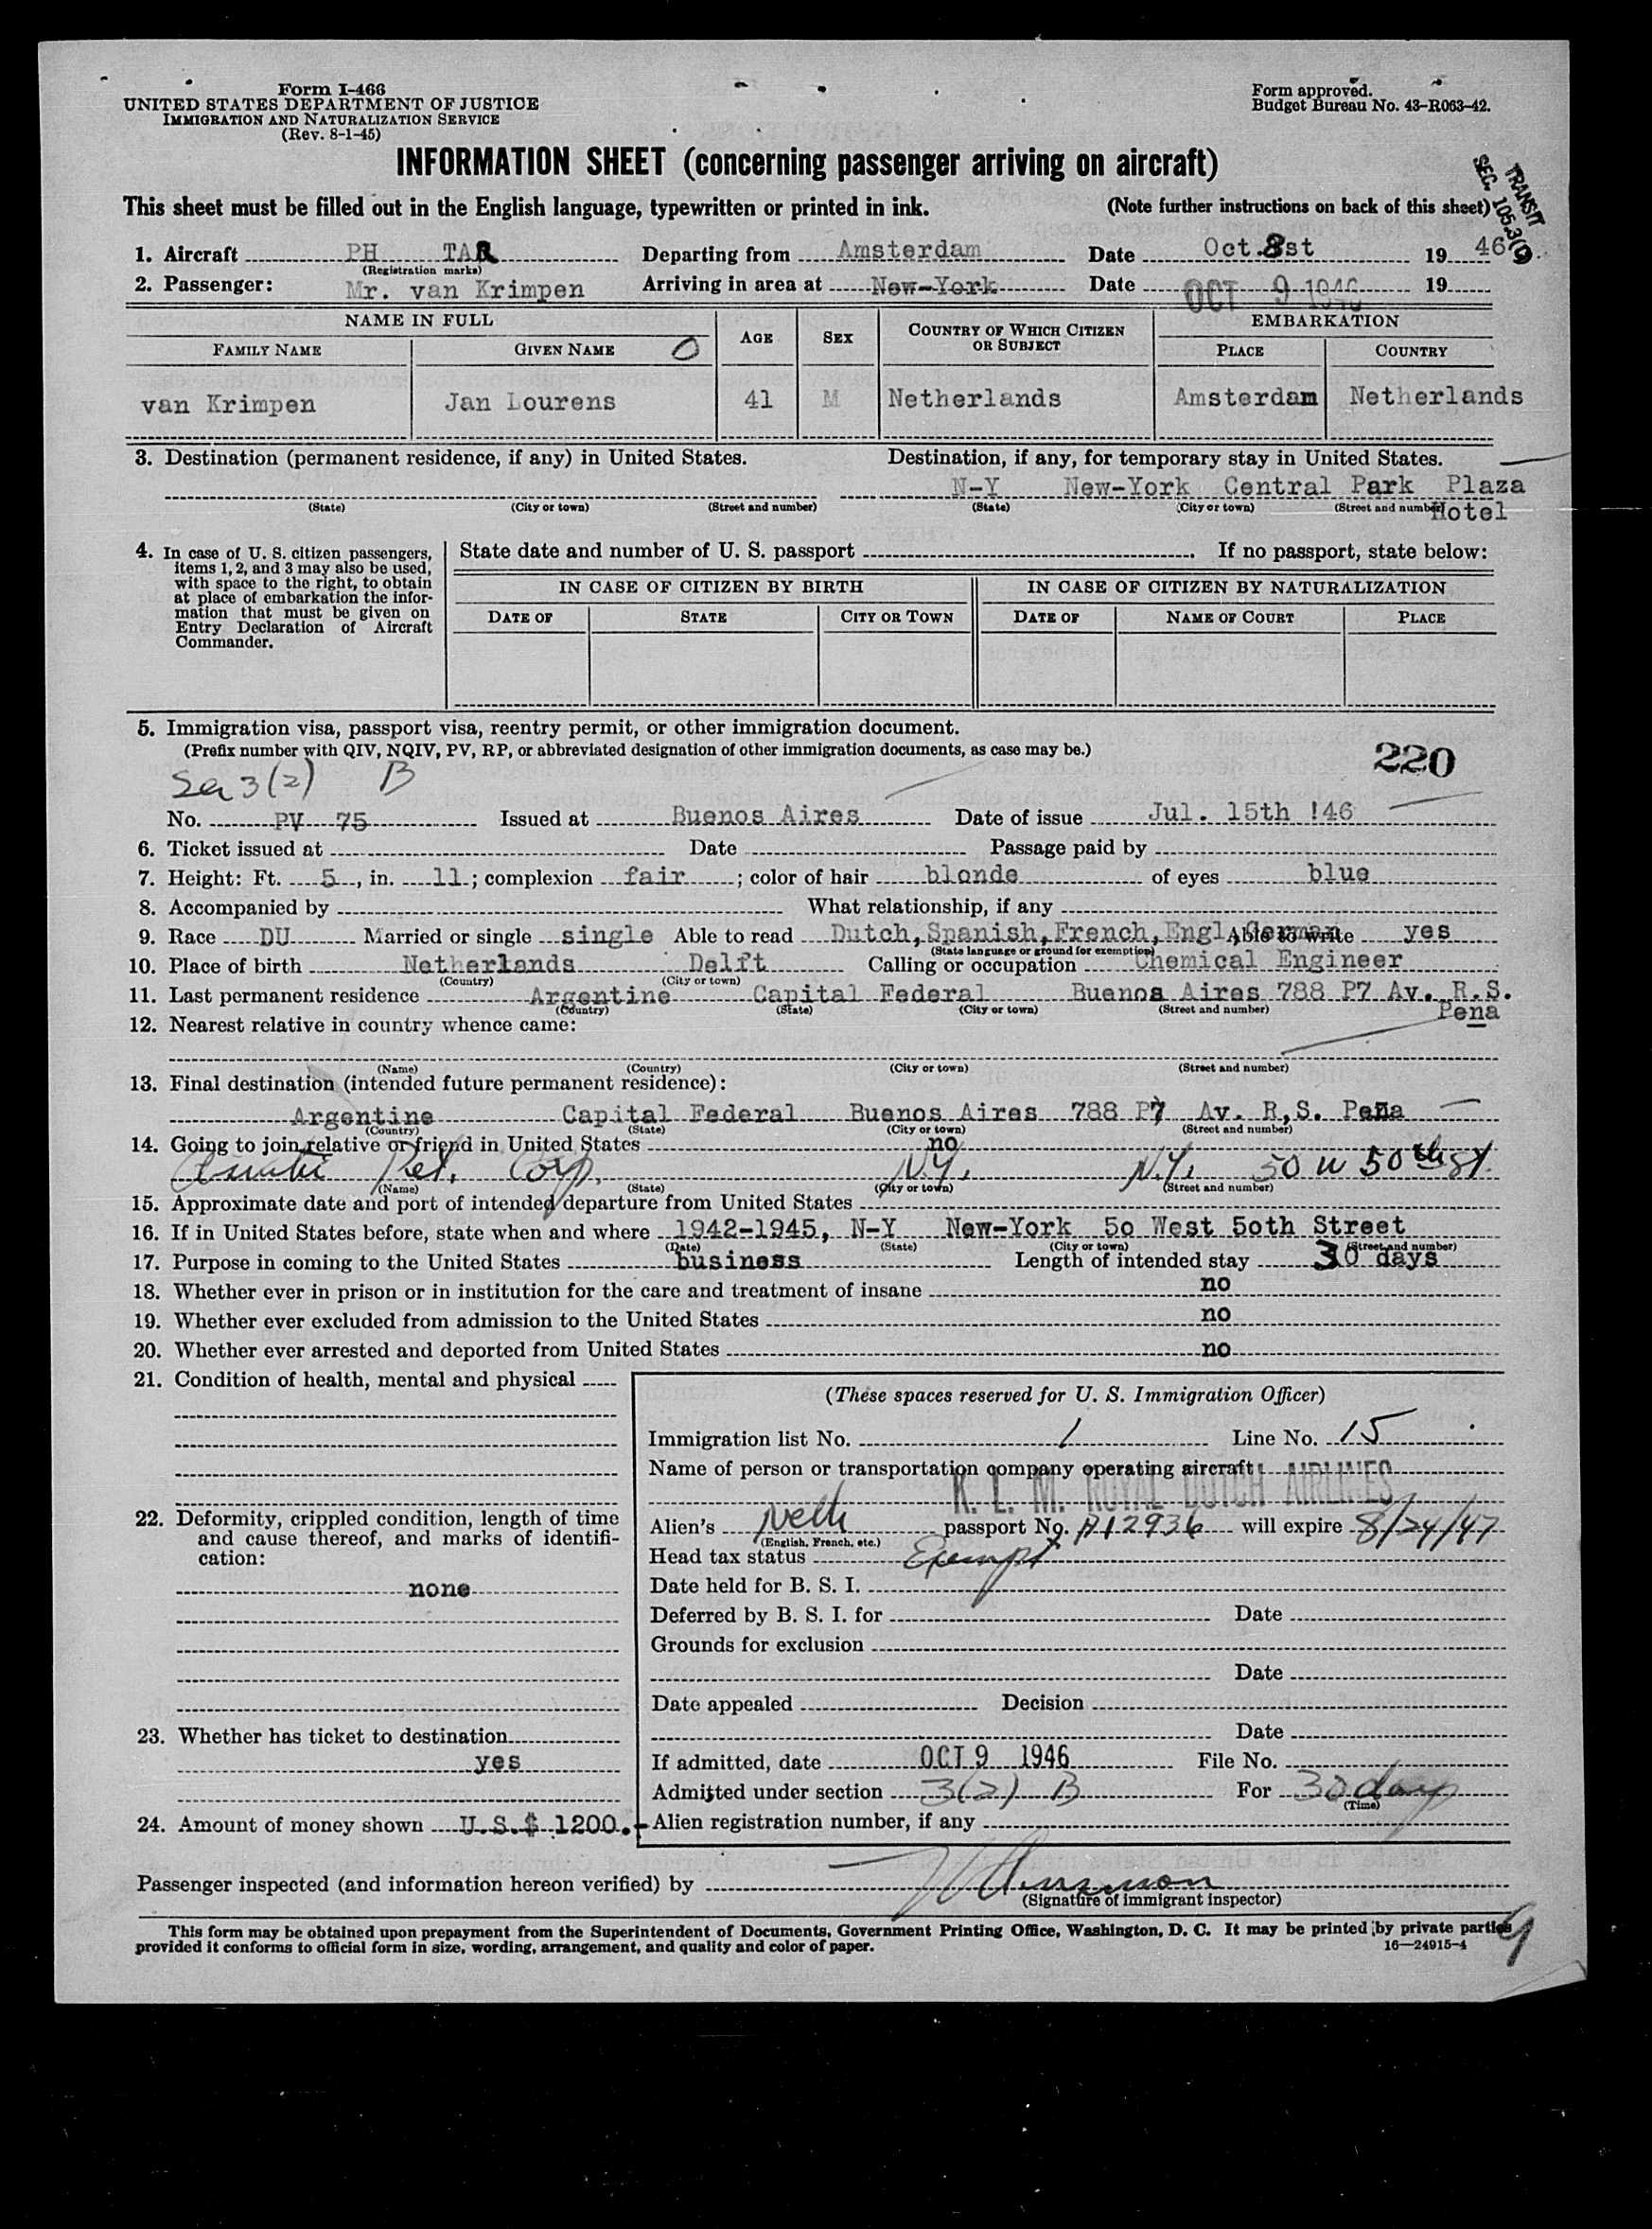 Form I-466
UNITED STATES DEPARTMENT OF JUSTICE
IMMIGRATION AND NATURALIZATION SERVICE
(Rev. 8-1-45)
Form approved.
Budget Bureau No. 43-R063-42.
INFORMATION SHEET (concerning passenger arriving on aircraft)
TRANSIT
SEC. 105.3(
This sheet must be filled out in the English language, typewritten or printed in ink. (Note further instructions on back of this sheet)
1. Aircraft PH TAR Departing from Amsterdam Date Oct. 8st 19 46
(Registration marks)
2. Passenger: Mr. van Krimpen Arriving in area at New-York Date OCT 9 1946 19
NAME IN FULL AGE SEX COUNTRY OF WHICH CITIZEN OR SUBJECT EMBARKATION
FAMILY NAME GIVEN NAME O PLACE COUNTRY
van Krimpen Jan Lourens 41 M Netherlands Amsterdam Netherlands
3. Destination (permanent residence, if any) in United States. Destination, if any, for temporary stay in United States.
N-Y New-York Central Park Plaza
(State) (City or town) (Street and number) (State) (City or town) (Street and number) Hotel
4. In case of U. S. citizen passengers, items 1, 2, and 3 may also be used, with space to the right, to obtain at place of embarkation the information that must be given on Entry Declaration of Aircraft Commander.
State date and number of U. S. passport . If no passport, state below:
IN CASE OF CITIZEN BY BIRTH IN CASE OF CITIZEN BY NATURALIZATION
DATE OF STATE CITY OR TOWN DATE OF NAME OF COURT PLACE
5. Immigration visa, passport visa, reentry permit, or other immigration document.
(Prefix number with QIV, NQIV, PV, RP, or abbreviated designation of other immigration documents, as case may be.)
220
Sec 3(2) B
No. PV 75 Issued at Buenos Aires Date of issue Jul. 15th !46
6. Ticket issued at Date Passage paid by
7. Height: Ft. 5, in. 11; complexion fair; color of hair blonde of eyes blue
8. Accompanied by What relationship, if any
9. Race DU Married or single single Able to read Dutch, Spanish, French, Engl, German Able to write yes
(State language or ground for exemption)
10. Place of birth Netherlands Delft Calling or occupation Chemical Engineer
(Country) (City or town)
11. Last permanent residence Argentine Capital Federal Buenos Aires 788 P7 Av. R.S.
(Country) (State) (City or town) (Street and number) Pena
12. Nearest relative in country whence came:
(Name) (Country) (City or town) (Street and number)
13. Final destination (intended future permanent residence):
Argentine Capital Federal Buenos Aires 788 P7 Av. R,S. Pena
(Country) (State) (City or town) (Street and number)
14. Going to join relative or friend in United States no
Pet. Corp. N.Y. N.Y. 50 W 50th St.
(Name) (State) (City or town) (Street and number)
15. Approximate date and port of intended departure from United States
16. If in United States before, state when and where 1942-1945, N-Y New-York 5o West 5oth Street
(Date) (State) (City or town) (Street and number)
17. Purpose in coming to the United States business Length of intended stay 30 days
18. Whether ever in prison or in institution for the care and treatment of insane no
19. Whether ever excluded from admission to the United States no
20. Whether ever arrested and deported from United States no
21. Condition of health, mental and physical
22. Deformity, crippled condition, length of time and cause thereof, and marks of identification:
none
23. Whether has ticket to destination
yes
24. Amount of money shown U.S.$ 1200.-
(These spaces reserved for U. S. Immigration Officer)
Immigration list No. 1 Line No. 15
Name of person or transportation company operating aircraft
K. L. M. ROYAL DUTCH AIRLINES
Alien's Neth passport No. A12936 will expire 8/24/47
(English, French, etc.)
Head tax status Exempt
Date held for B. S. I.
Deferred by B. S. I. for Date
Grounds for exclusion
Date
Date appealed Decision
Date
If admitted, date OCT 9 1946 File No.
Admitted under section 3(2) B For 30 days
(Time)
Alien registration number, if any
Passenger inspected (and information hereon verified) by
(Signature of immigrant inspector)
This form may be obtained upon prepayment from the Superintendent of Documents, Government Printing Office, Washington, D. C. It may be printed by private parties
provided it conforms to official form in size, wording, arrangement, and quality and color of paper. 16—24915-4
9